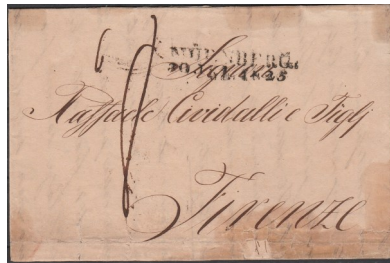 NÜRNBERG.
1825
Raffaele Cividalli e Figlj
Firenze